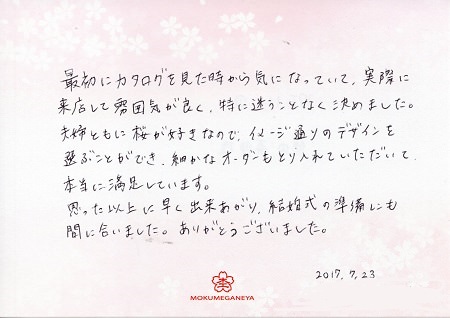 最初にカタログを見た時から気になっていて、実際に
来店して雰囲気が良く、特に迷うことなく決めました。
夫婦ともに桜が好きなので、イメージ通りのデザインを
選ぶことができ、細かなオーダーもとり入れていただいて、
本当に満足しています。
思った以上に早く出来あがり、結婚式の準備にも
間に合いました。ありがとうございました。
2017.7.23
MOKUMEGANEYA